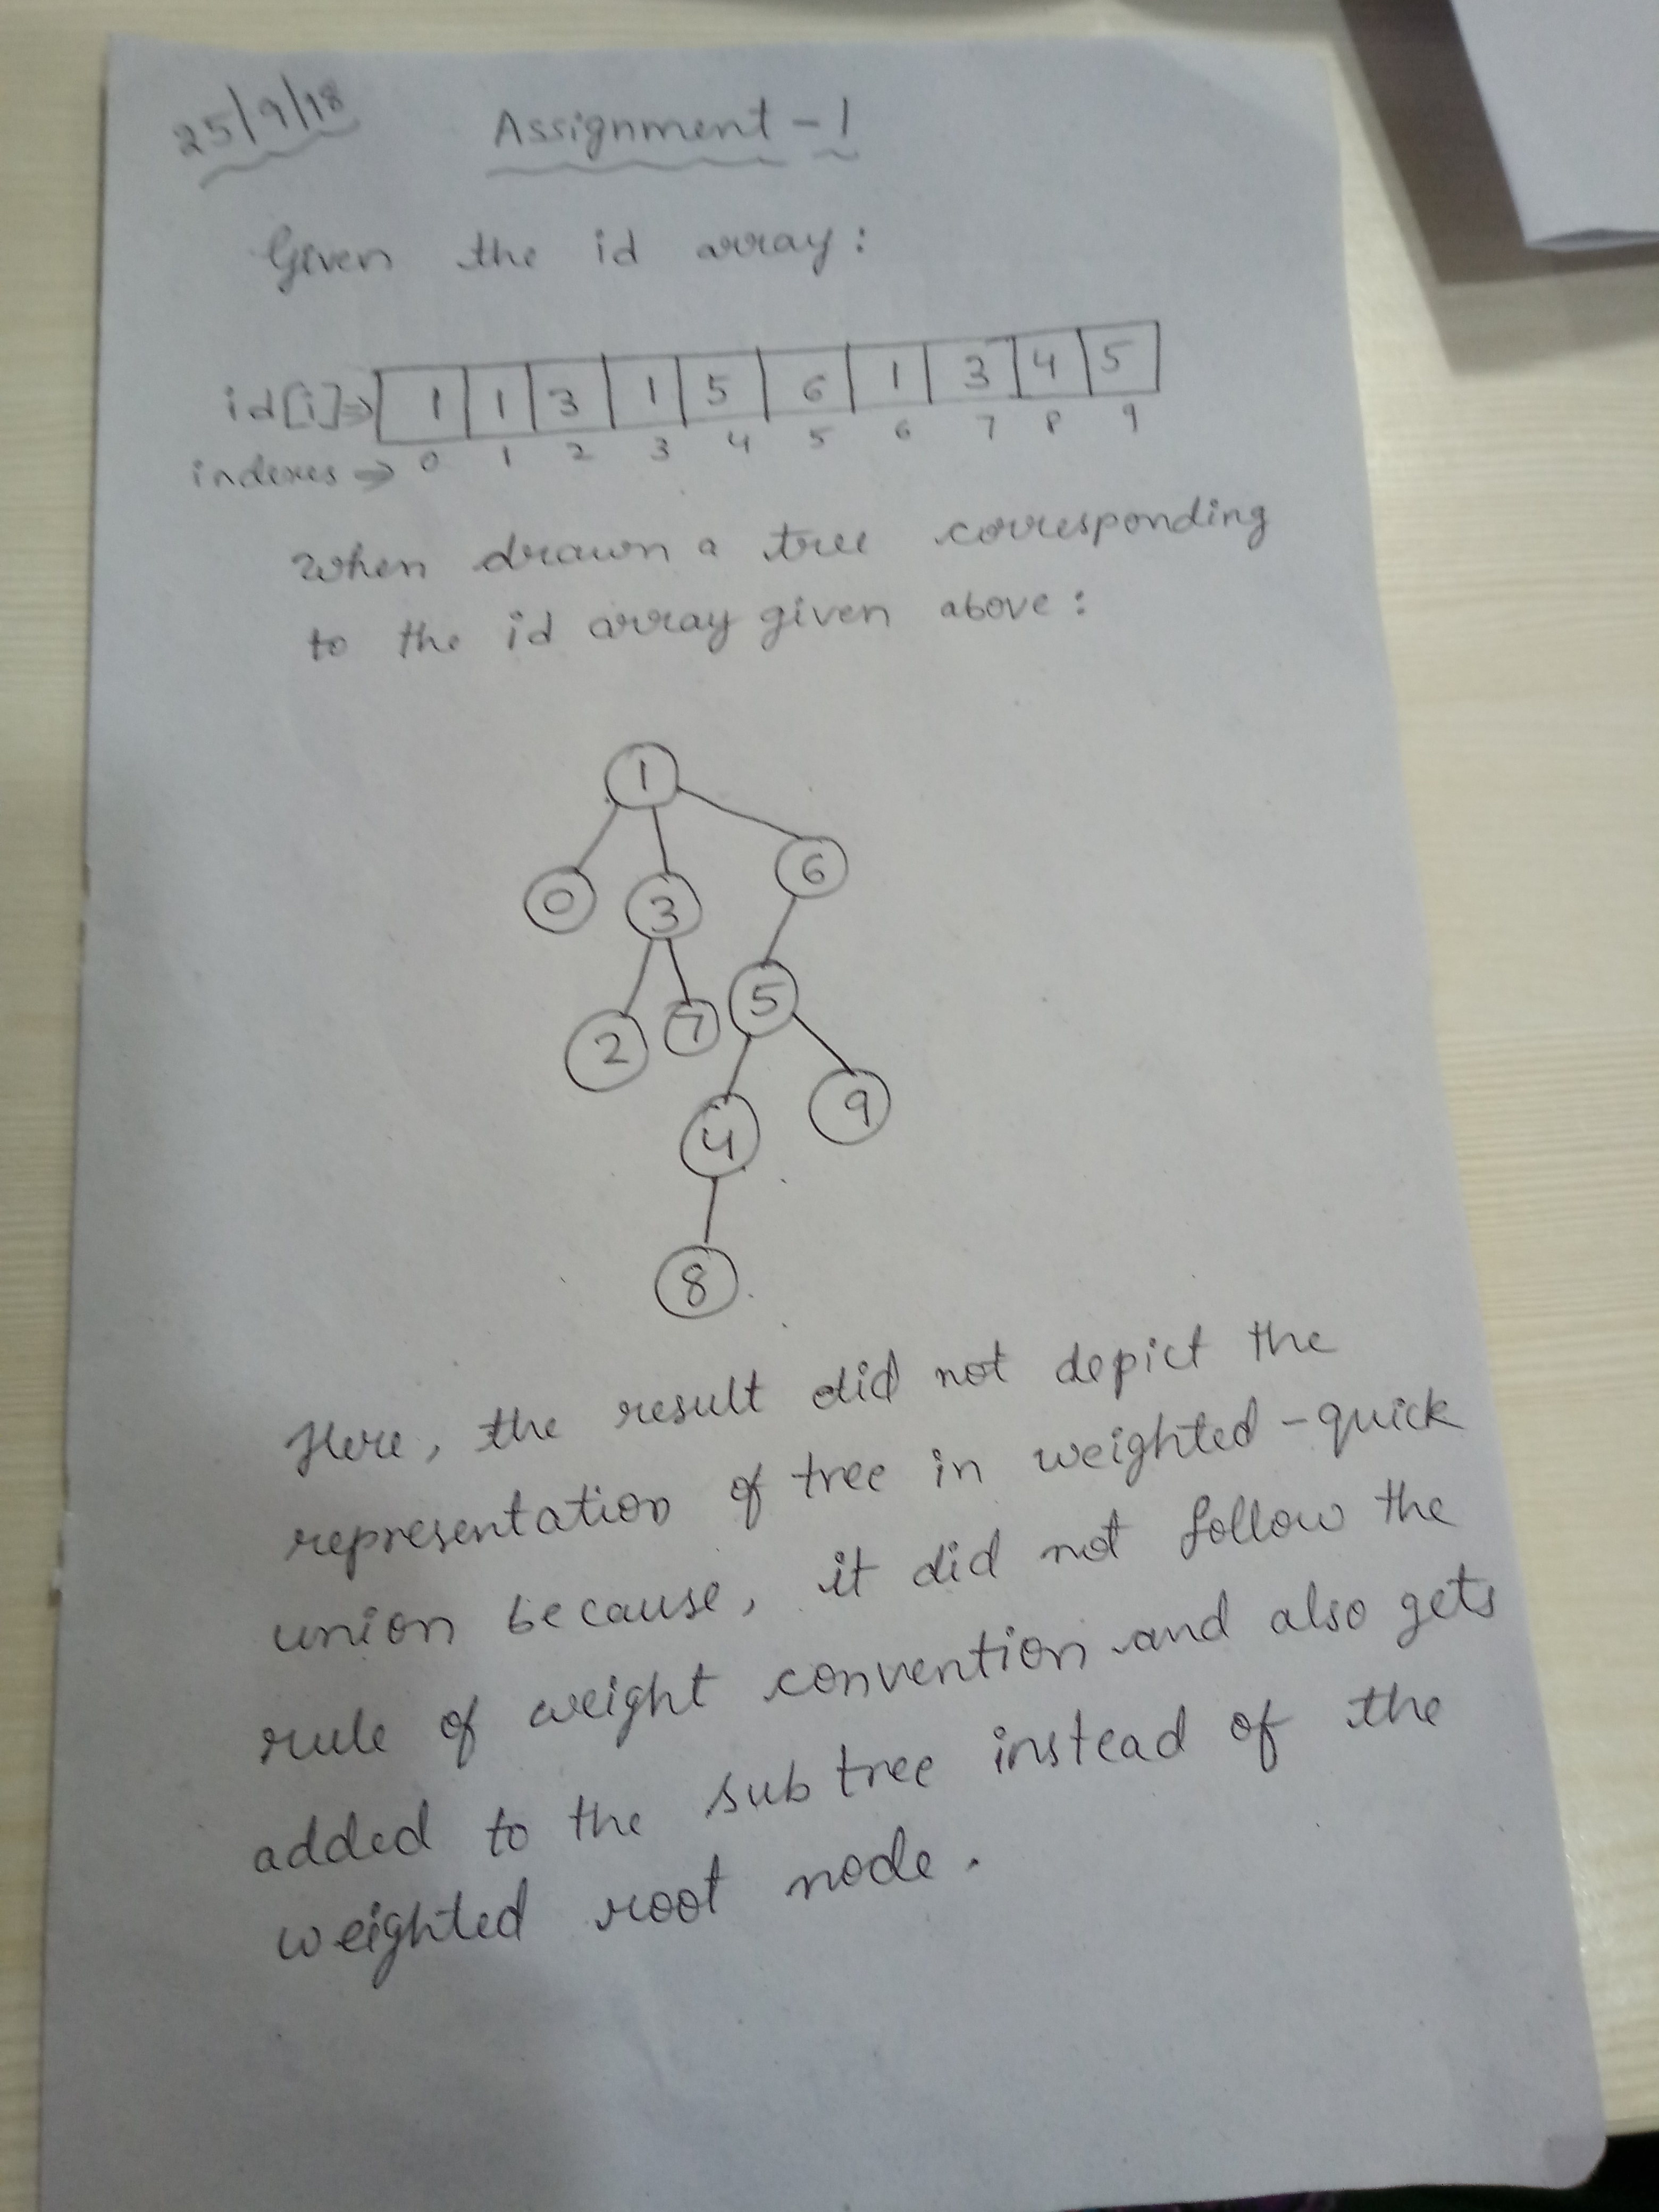 25/9/18 Assignment - 1
Given the id array:
id[i]⇒ 1 1 3 1 5 6 1 3 4 5
indexes → 0 1 2 3 4 5 6 7 8 9
When drawn a tree corresponding
to the id array given above:
1
6
0 3
5
2 7
4 9
8
Here, the result did not depict the
representation of tree in weighted-quick
union because, it did not follow the
rule of weight convention and also gets
added to the sub tree instead of the
weighted root node.